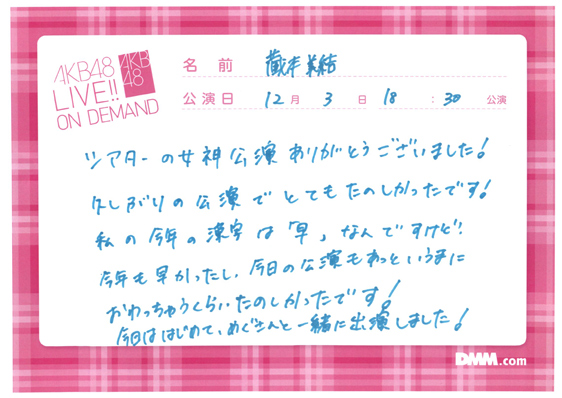 AKB48
LIVE!!
ON DEMAND
AKB
48
名 前 蔵本美結
公演日 12 月 3 日 18 : 30 公演
シアターの女神公演ありがとうございました!
久しぶりの公演でとてもたのしかったです!
私の今年の漢字は「早」なんですけど!
今年も早かったし、今日の公演もあっというまに
おわっちゃうくらいたのしかったです!
今日ははじめて、めぐさんと一緒に出演しました!
DMM.com